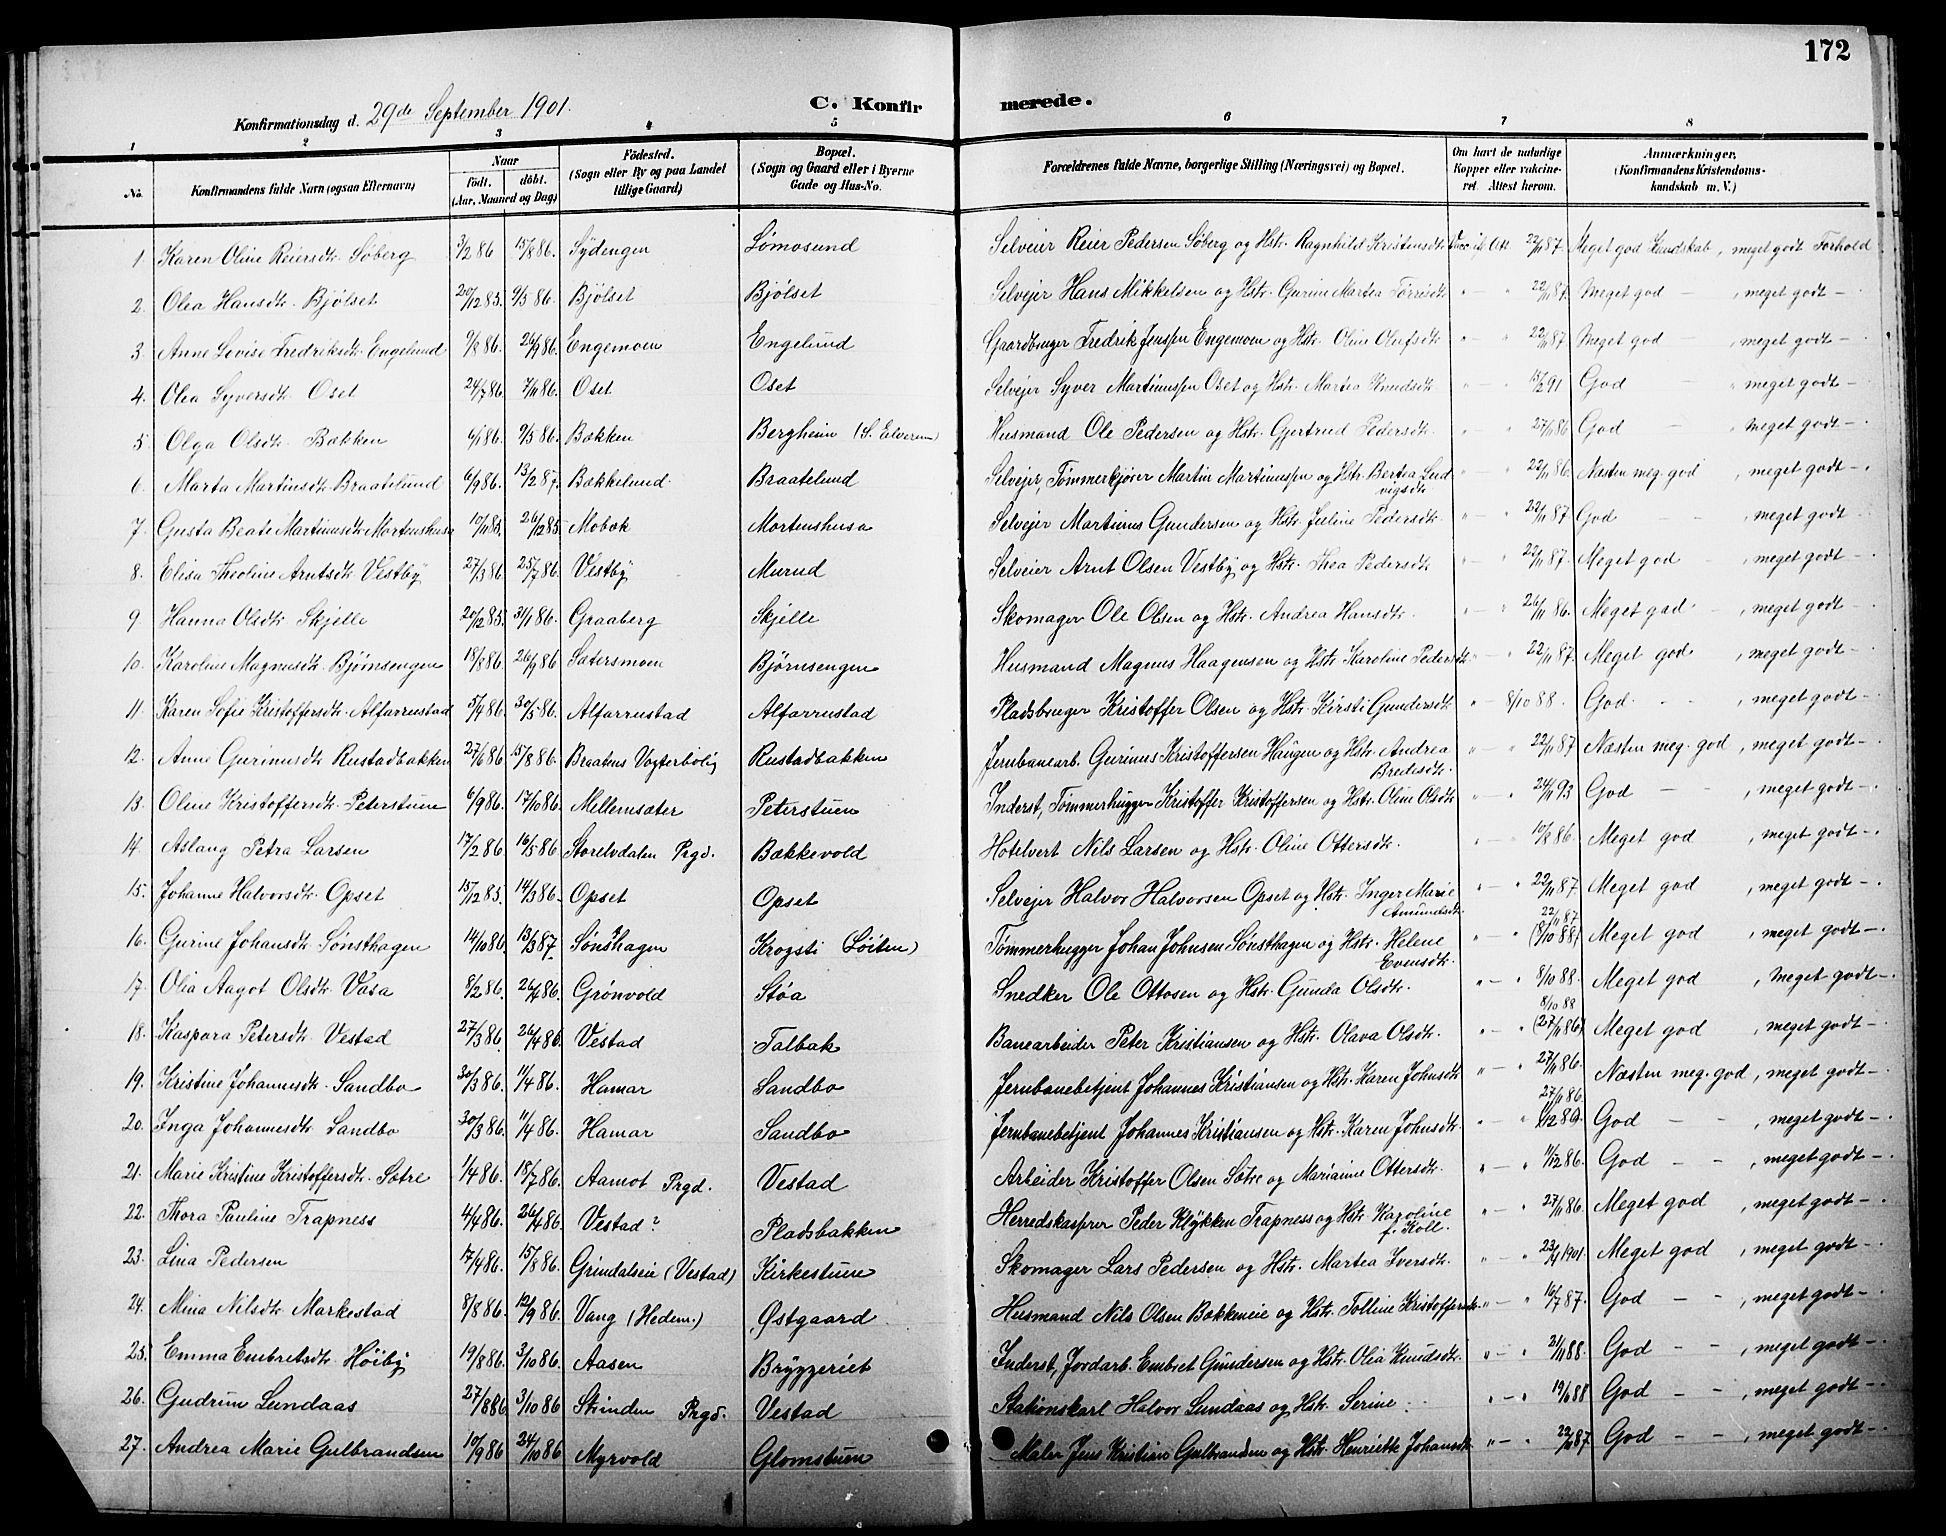 172
Konfirmationsdag d. 29de September 1901.
C. Konfirmerede.
1 2 3 4 5 6 7 8
No. Konfirmandens fulde Navn (ogsaa Efternavn) Naar født. døbt. (Aar, Maaned og Dag) Fødested. (Sogn eller By og paa Landet tillige Gaard) Bopæl. (Sogn og Gaard eller i Byerne Gade og Hus-No. Forældrenes fulde Navne, borgerlige Stilling (Næringsvei) og Bopæl. Om havt de naturlige Kopper eller vaccineret. Attest herom. Anmærkninger. (Konfirmandens Kristendomskundskab m. V.)
1. Karen Oline Reiersdtr. Søberg 3/2 86 15/8 86. Sydengen Lømosund Selveier Reier Pedersen Søberg og Hstr. Ragnhild Kristensdtr. 22/11 87. Meget god Kundskab, meget godt Forhold
2. Olea Hansdtr. Bjølset 20/12 85. 9/5 86. Bjølset Bjølset Selvejer Hans Mikkelsen og Hstr. Gurine Martea Tørrisdtr. " — " 22/11 87. Meget god — , meget godt —
3. Anne Lovise Fredriksdtr. Engelund 9/8 86. 26/9 86. Engemoen Engelund Gaardbruger Fredrik Jenssen Engemoen og Hstr. Oline Olufsdtr. " — " 22/11 87. Meget god — , meget godt —
4. Olea Syversdtr. Oset 24/7 86. 7/11 86. Oset Oset Selvejer Syver Martinussen Oset og Hstr. Martea Knudsdtr. " — " 15/2 91 God — " meget godt —
5 Olga Olsdtr. Bakken 6/1 86. 9/5 86. Bakken Bergheim (S. Elverum) Husmand Ole Pedersen og Hstr. Gjertrud Pedersdtr. " — " 27/11 86 God — , meget godt —
6. Marta Martinsdtr. Braatelund 6/9 86. 13/2 87. Bækkelund Braatelund Selvejer, Tømmerkjører Martin Martinussen og Hstr. Bertea Ludvigsdtr. " — " 22/11 86. Næsten meg. god , meget godt —.
7. Gusta Beate Martinusdtr. Mortenshusa 10/11 85. 26/12 85 Mobæk Mortenshusa Selvejer Martinus Gundersen og Hstr. Juline Pedersdtr. " — " 22/11 87 God — — , meget godt —
8. Elisa Theoline Arntsdtr. Vestby 27/3 86. 25/7 86. Vestby Murud Selveier Arnt Olsen Vestby og Hstr. Thea Pedersdtr. " — " 22/11 87. Meget god — , meget godt —
9 Hanna Olsdtr. Skjelle 20/12 85. 31/1 86. Graaberg Skjelle Skomager Ole Olsen og Hstr. Andrea Hansdtr. " — " 26/11 86. Meget god , meget godt —
10. Karoline Magnusdtr. Bjørnsengen 18/8 86. 26/9 86. Sætersmoen Bjørnsengen Husmand Magnus Haagensen og Hstr. Karoline Pedersdtr. " — " 22/11 87. Meget god , meget godt —
11. Karen Sofie Kristoffersdtr. Alfarrustad 30/5 86. Alfarrustad Alfarrustad Pladsbruger Kristoffer Olsen og Hstr. Kirsti Gundersdtr. " — 8/10 88. God. — — , meget godt —
12. Anne Gurinusdtr. Rustadbakken 27/6 86. 15/8 86. Braatens Vogterbolig Rustadbakken Jernbanearb. Gurinus Kristoffersen Haugen og Hstr. Andrea Bredesdtr. " — " 22/11 87 Næsten meg. god , meget godt —
13. Oline Kristoffersdtr. Peterstuen 6/9 86. 17/10 86. Mellemsæter Peterstuen Inderst, Tømmerhugger Kristoffer Kristoffersen og Hstr. Oline Olsdtr. " — " 24/11 93 God — — , meget godt —.
14 Aslaug Petra Larsen 17/2 86 16/5 86 Storelvdalen Prgd. Bækkevold Hotelvert Nils Larsen og Hstr. Oline Ottersdtr. " — " 10/8 86. Meget god , meget godt —.
15. Johanne Halvorsdtr. Opset 15/12 85. 14/3 86. Opset Opset Selvejer Halvor Halvorsen Opset og Hstr. Inger Marie Amundsdtr. " — " 22/11 87 Meget god , meget godt —.
16. Gurine Johansdtr. Sønsthagen 14/10 86. 13/3 87. Sønsthagen Krogsti (Løiten) Tømmerhugger Johan Johnsen Sønsthagen og Hstr. Helene Evensdtr. " — " 22/11 87 (8/10 88) Meget god , meget godt —.
17. Olea Aagot Olsdtr. Vasa 8/2 86. 26/4 86. Grønvold Støa Snedker Ole Ottosen og Hstr. Gunda Olsdtr. " — " 8/10 88. Meget god , meget godt —.
18. Kaspara Petersdtr. Vestad 27/3 86. 26/4 86. Vestad Talbak Banearbeider Peter Kristiansen og Hstr. Olava Olsdtr. " — " 8/10 88 (27/11 86) Meget god , meget godt —
19. Kristine Johannesdtr. Sandbo 30/3 86. 11/4 86. Hamar Sandbo Jernbanebetjent Johannes Kristiansen og Hstr. Karen Johnsdtr. " — " 27/11 86. Næsten meg. god , meget godt —.
20. Inga Johannesdtr. Sandbo 30/3 86. 11/4 86. Hamar Sandbo Jernbanebetjent Johannes Kristiansen og Hstr. Karen Johnsdtr. " — " 27/11 86 God — — , meget godt —.
21. Marie Kristine Kristoffersdtr. Sætre 1/4 86. 18/7 86. Aamot Prgd. Vestad Arbeider Kristoffer Olsen Sætre og Marianne Ottersdtr. " — " 11/12 86. God — — , meget godt —.
22. Thora Pauline Trapness 4/4 86. 26/4 86. Vestad? Pladsbakken Herredskasserer Peder Klykken Trapness og Hstr. Karoline f. Koll. " — " 27/11 86. Meget god , meget godt —.
23. Lina Pedersen 17/4 86. 15/8 86. Grindalseie (Vestad) Kirkestuen Skomager Lars Pedersen og Hstr. Martea Iversdtr. " — " 1901. Meget god , meget godt —.
24. Mina Nilsdtr. Markestad 8/8 86. 12/9 86. Vang (Hedem.) Østgaard. Husmand Nils Olsen Bakkeneie og Hstr. Tolline Kristoffersdtr. " — " 16/7 87. God — — , meget godt —.
25. Emma Embretsdtr. Høiby 19/8 86. 3/10 86. Aasen Bryggeriet Inderst, Jordarb. Embret Gundersen og Hstr. Olia Knudsdtr. " — " 21/11 88. God — — , meget godt —.
26. Gudrun Lundaas 27/8 86 3/10 86 Strinden Prgd. Vestad Stationskarl Halvor Lundaas og Hstr. Serine. " — " God — — , meget godt —.
27. Andrea Marie Gulbrandsen 10/9 86 24/10 86 Myrvold Glomstuen Maler Jens Kristian Gulbrandsen og Hstr. Henriette Johansdtr. " — " 22/11 87. God — — , meget godt —.